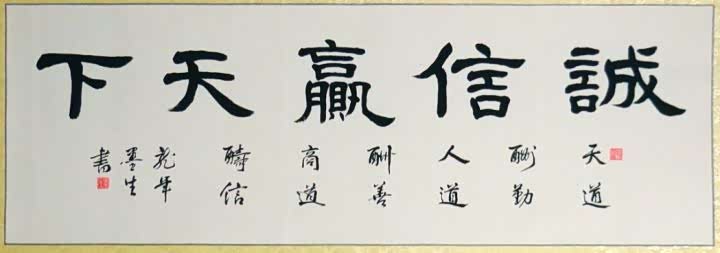 誠信贏天下
天道
酬勤
人道
酬善
商道
酬信
龍年
墨生
書